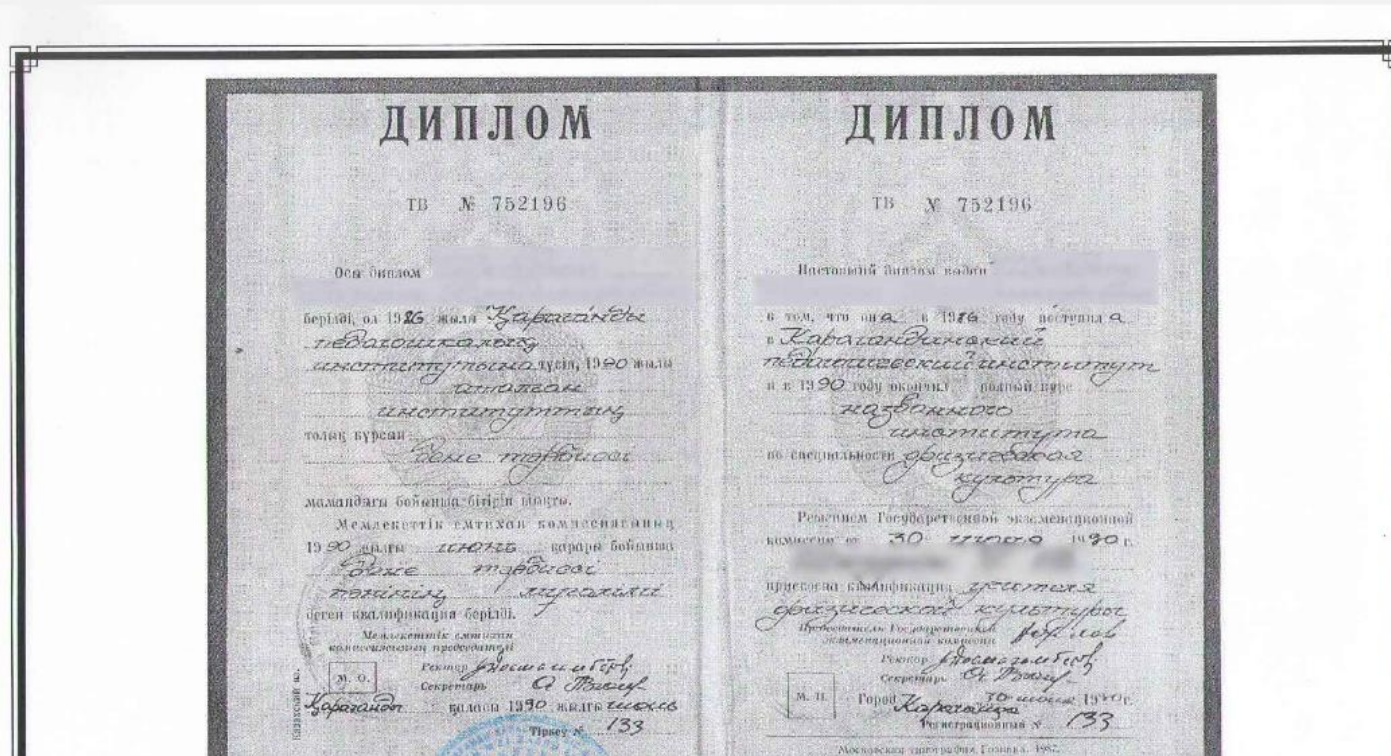 ДИПЛОМ
ТВ № 752196
Осы диплом
берілді, ол 1986 жылы Қарағанды
педагогикалық
институтына түсіп, 1990 жылы
аталған
институттың
толық курсын
дене тәрбиесі
мамандығы бойынша бітіріп шықты.
Мемлекеттік емтихан комиссиясының
1990 жылғы июнь қарары бойынша
дене тәрбиесі
пәнінің мұғалімі
деген квалификация берілді.
Мемлекеттік емтихан
комиссиясының председателі
Ректор
Секретарь
М. О.
Қарағанды қаласы 1990 жылғы июнь
Тіркеу № 133
Казахский яз.
ДИПЛОМ
ТВ № 752196
Настоящий диплом выдан
в том, что она в 1986 году поступила
в Карагандинский
педагогический институт
и в 1990 году окончил полный курс
названного
института
по специальности физическая
культура
Решением Государственной экзаменационной
комиссии от 30 июня 1990 г.
присвоена квалификация учителя
физической культуры
Председатель Государственной
экзаменационной комиссии
Ректор
Секретарь
М. П.
Город Караганда 30 июня 1990 г.
Регистрационный № 133
Московская типография Гознака. 1987.